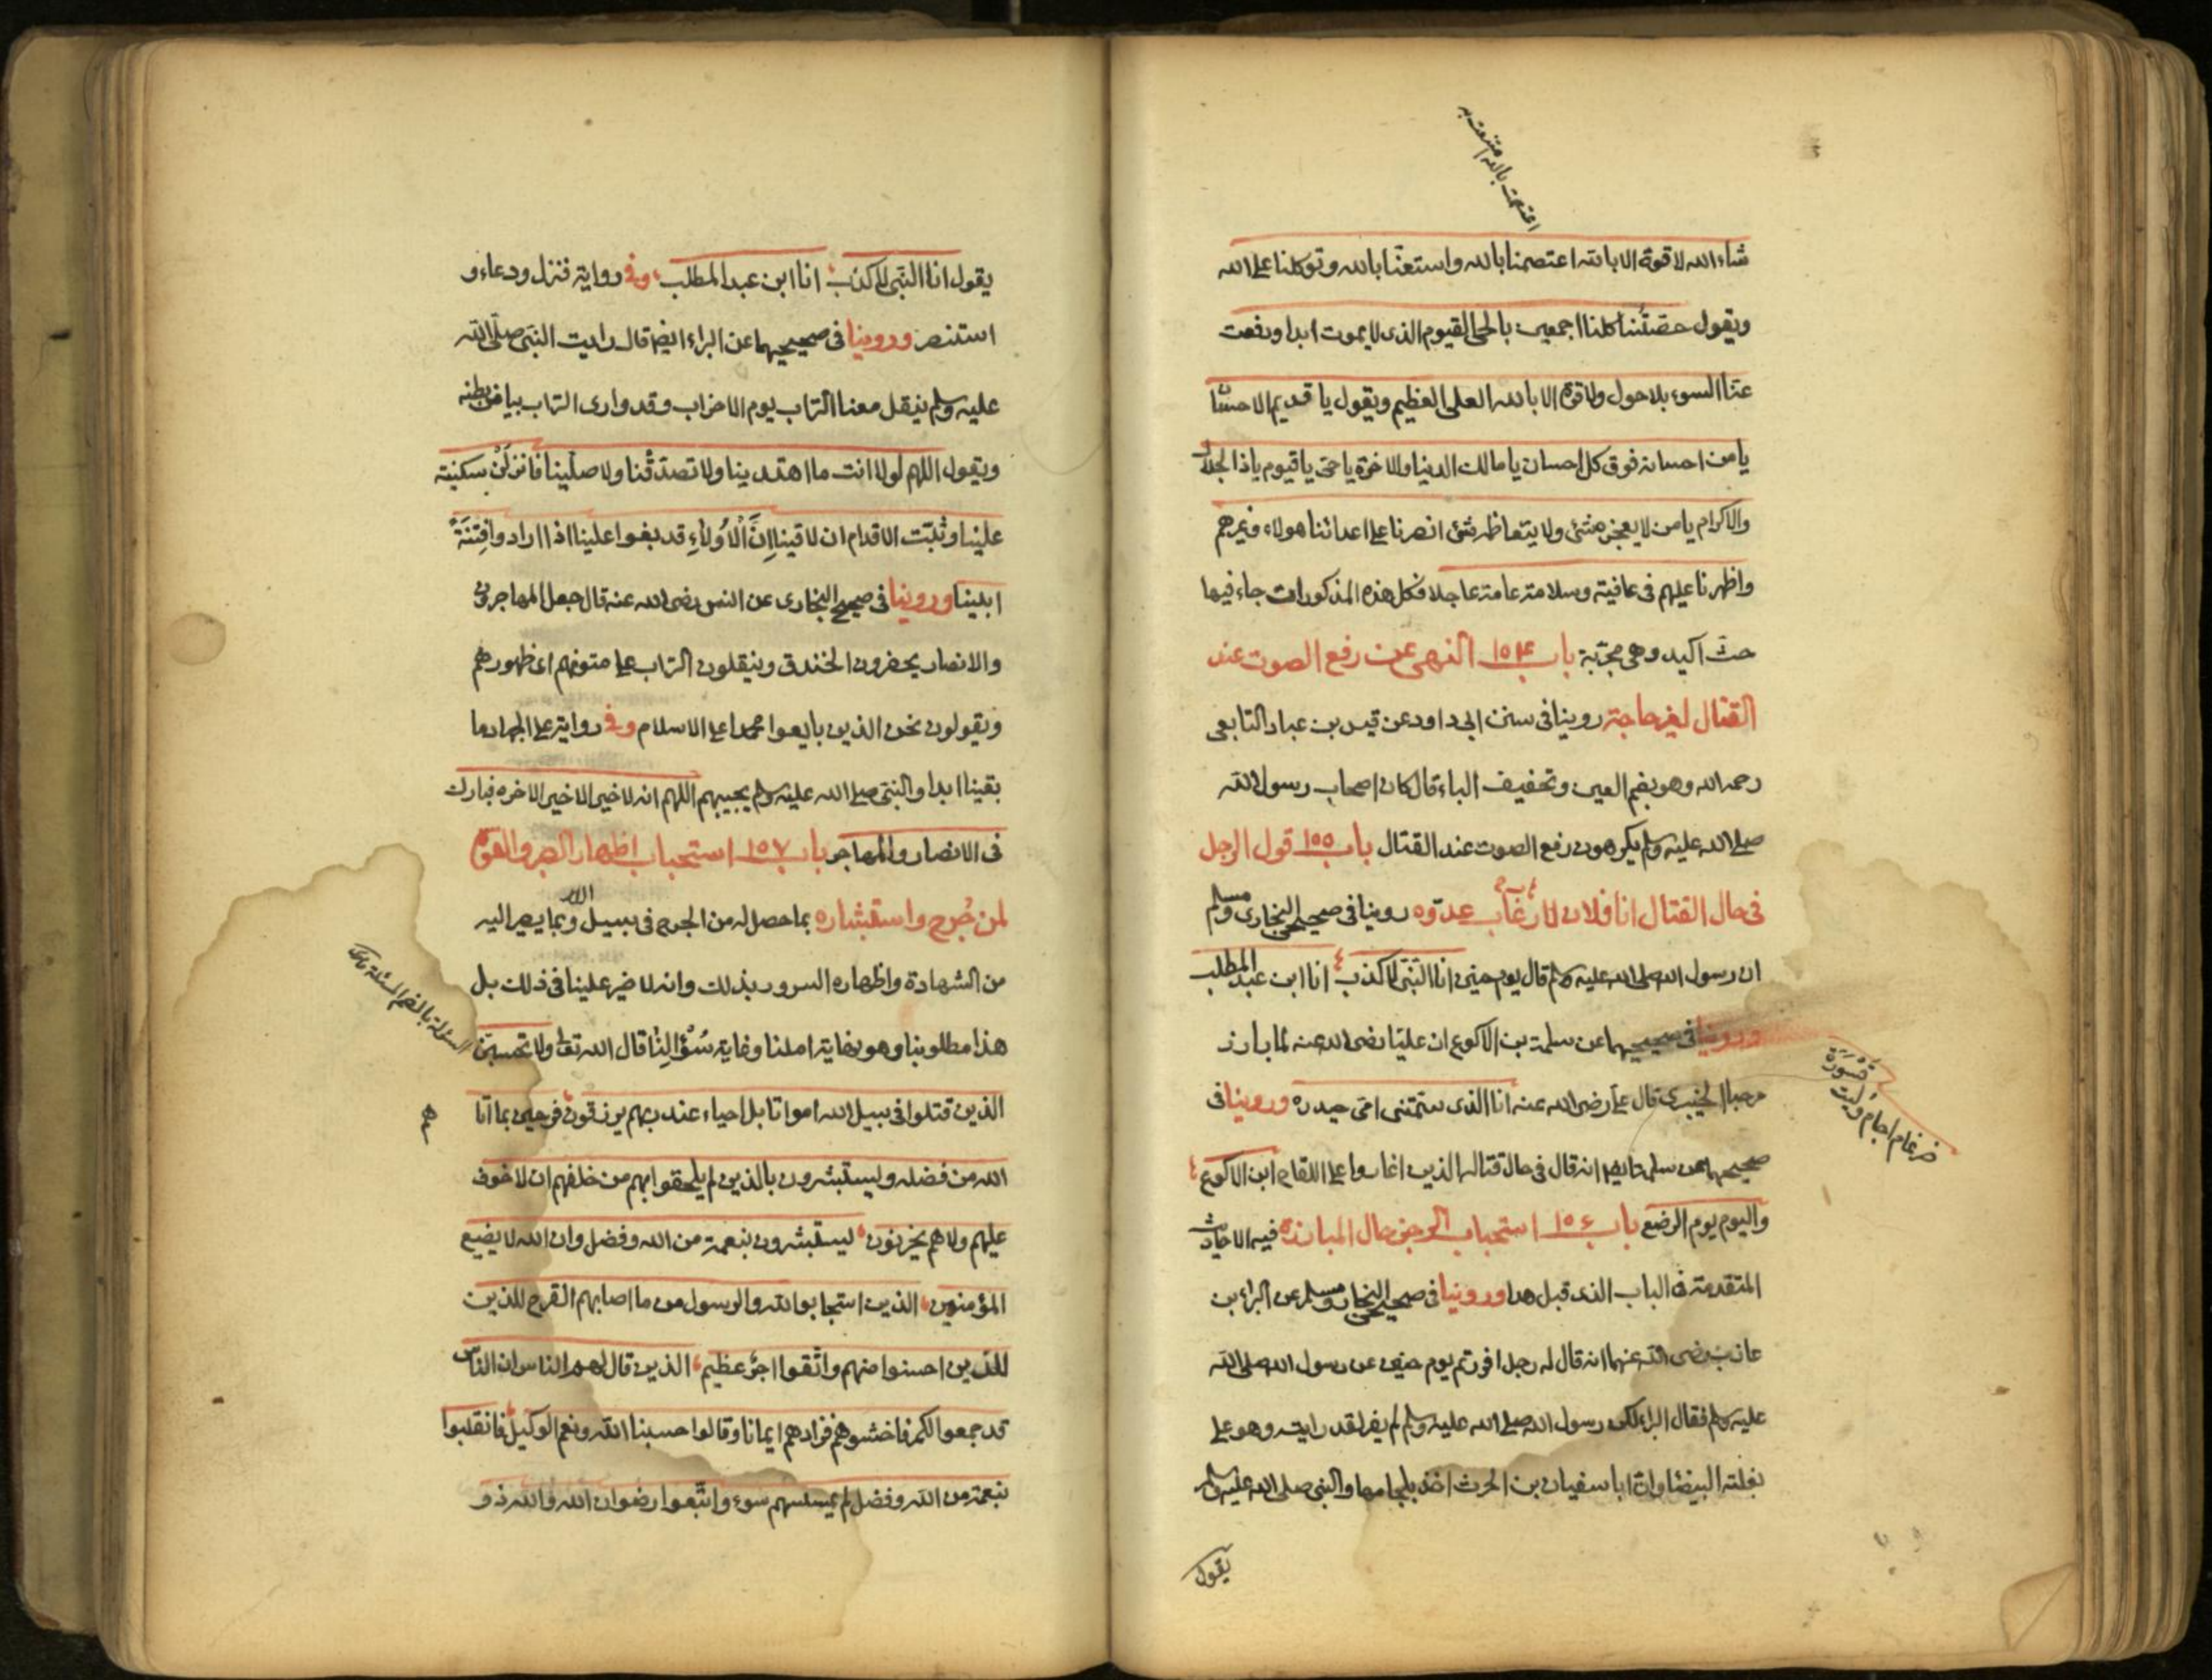 اعتصمت بالله استعنت به
شاء الله لا قوة الا بالله اعتصمنا بالله واستعنا بالله وتوكلنا على الله
ويقول حصنتنا كلنا اجمعين بالحي القيوم الذي لا يموت ابدا ودفعت
عنا السوء بلا حول ولا قوة الا بالله العلي العظيم ويقول يا قديم الاحسان
يا من احسانه فوق كل احسان يا مالك الدنيا والاخرة يا حي يا قيوم يا ذا الجلال
والاكرام يا من لا يعجزه شئ ولا يتعاظمه شئ انصرنا على اعدائنا هولاء وغيرهم
واظهرنا عليهم في عافية وسلامة عامة عاجلا فكل هذه المذكورات جاء فيها
حث اكيد وهي مجربة باب ١٥٤ النهي عن رفع الصوت عند
القتال لغير حاجة روينا في سنن ابي داود عن قيس بن عباد التابعي
رحمه الله وهو بضم العين وتخفيف الباء قال كان اصحاب رسول الله
صلى الله عليه وسلم يكرهون رفع الصوت عند القتال باب ١٥٥ قول الرجل
في حال القتال انا فلان لارغاب عدوه روينا في صحيحي البخاري ومسلم
ان رسول الله صلى الله عليه وسلم قال يوم حنين انا النبي لا كذب انا ابن عبد المطلب
وروينا في صحيحيهما عن سلمة بن الاكوع ان عليا رضى الله عنه لما بارز
مرحبا الخيبري قال علي رضى الله عنه انا الذي سمتني امي حيدره وروينا في
قسورة
ضرغام اجام وليث
صحيحيهما عن سلمة ايضا انه قال في حال قتاله الذين اغاروا على اللقاح انا ابن الاكوع
واليوم يوم الرضع باب ١٥٦ استحباب الرجز حال المبارزة فيه الاحاديث
المتقدمة في الباب الذي قبل هذا وروينا في صحيحي البخاري ومسلم عن البراء بن
عازب رضى الله عنهما انه قال له رجل افررتم يوم حنين عن رسول الله صلى الله
عليه وسلم فقال البراء لكن رسول الله صلى الله عليه وسلم لم يفر لقد رايته وهو على
بغلته البيضا وان ابا سفيان بن الحرث اخذ بلجامها والنبي صلى الله عليه وسلم
يقول
يقول انا النبي لا كذب انا ابن عبد المطلب وفي رواية فنزل ودعاء و
استنصر وروينا في صحيحيهما عن البراء ايضا قال رايت النبي صلى الله
عليه وسلم ينقل معنا التراب يوم الاحزاب وقد وارى التراب بياض بطنه
ويقول اللهم لولا انت ما اهتدينا ولا تصدقنا ولا صلينا فانزلن سكينة
علينا وثبت الاقدام ان لاقينا ان الاولاء قد بغوا علينا اذا ارادوا فتنة
ابينا وروينا في صحيح البخاري عن انس رضى الله عنه قال جعل المهاجرون
والانصار يحفرون الخندق وينقلون التراب على متونهم اى ظهورهم
ويقولون نحن الذين بايعوا محمدا على الاسلام وفي رواية على الجهاد ما
بقينا ابدا والنبي صلى الله عليه وسلم يجيبهم اللهم انه لا خير الا خير الاخره فبارك
في الانصار والمهاجر باب ١٥٧ استحباب اظهار الصبر والقوة
لمن جرح واستبشاره بما حصل له من الجرح في سبيل الله وبما يصير اليه
من الشهادة واظهاره السرور بذلك وانه لا ضير علينا في ذلك بل
هذا مطلوبنا وهو نهاية املنا وغاية سؤالنا قال الله تعالى ولا تحسبن
السؤلة بالضم المسئلة
الذين قتلوا في سبيل الله امواتا بل احياء عند ربهم يرزقون فرحين بما اتا
هم
الله من فضله ويستبشرون بالذين لم يلحقوا بهم من خلفهم ان لا خوف
عليهم ولا هم يحزنون يستبشرون بنعمة من الله وفضل وان الله لا يضيع
المؤمنين الذين استجابوا لله والرسول من ما اصابهم القرح للذين
للذين احسنوا منهم واتقوا اجر عظيم الذين قال لهم الناس ان الناس
قد جمعوا لكم فاخشوهم فزادهم ايمانا وقالوا حسبنا الله ونعم الوكيل فانقلبوا
بنعمة من الله وفضل لم يمسسهم سوء واتبعوا رضوان الله والله ذو